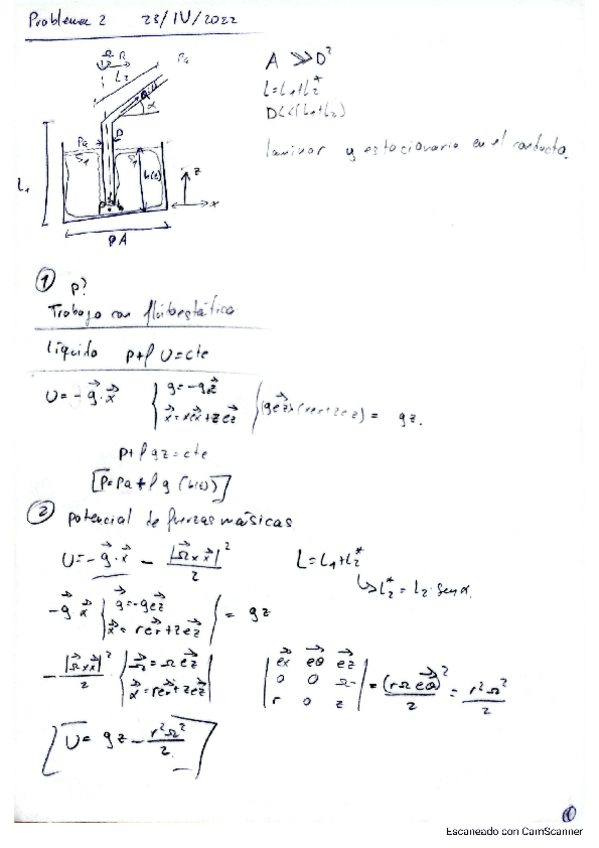 Problema 2 23/IV/2022
Ω R
L2
Pa
α
A ≫ D²
L=L1+L2*
D≪(L1+L2)
laminar y estacionario en el conducto.
Pa D
S1 S1 h(t)
L1
z
x
φA
① P?
Trabajo con fluidoestática
líquido P+ρU=cte
U=-g⃗·x⃗ { g⃗=-gz⃗ x⃗=xex⃗+zez⃗ } = gz.
P+ρgz=cte
[P=Pa+ρg(h(t))]
② potencial de fuerzas másicas
U=-g⃗·x⃗ - |Ω⃗×x⃗|²/2 L=L1+L2*
↳L2*=L2·senα.
-g⃗ x⃗ { g⃗=-gez⃗ x⃗=rer⃗+zez⃗ } = gz
-|Ω⃗×x⃗|²/2 { Ω⃗=Ωez⃗ x⃗=rer⃗+zez⃗ } | ex⃗ eθ⃗ ez⃗ 0 0 Ω r 0 z | = (rΩeθ⃗)²/2 = r²Ω²/2
[U=gz-r²Ω²/2]
①
Escaneado con CamScanner